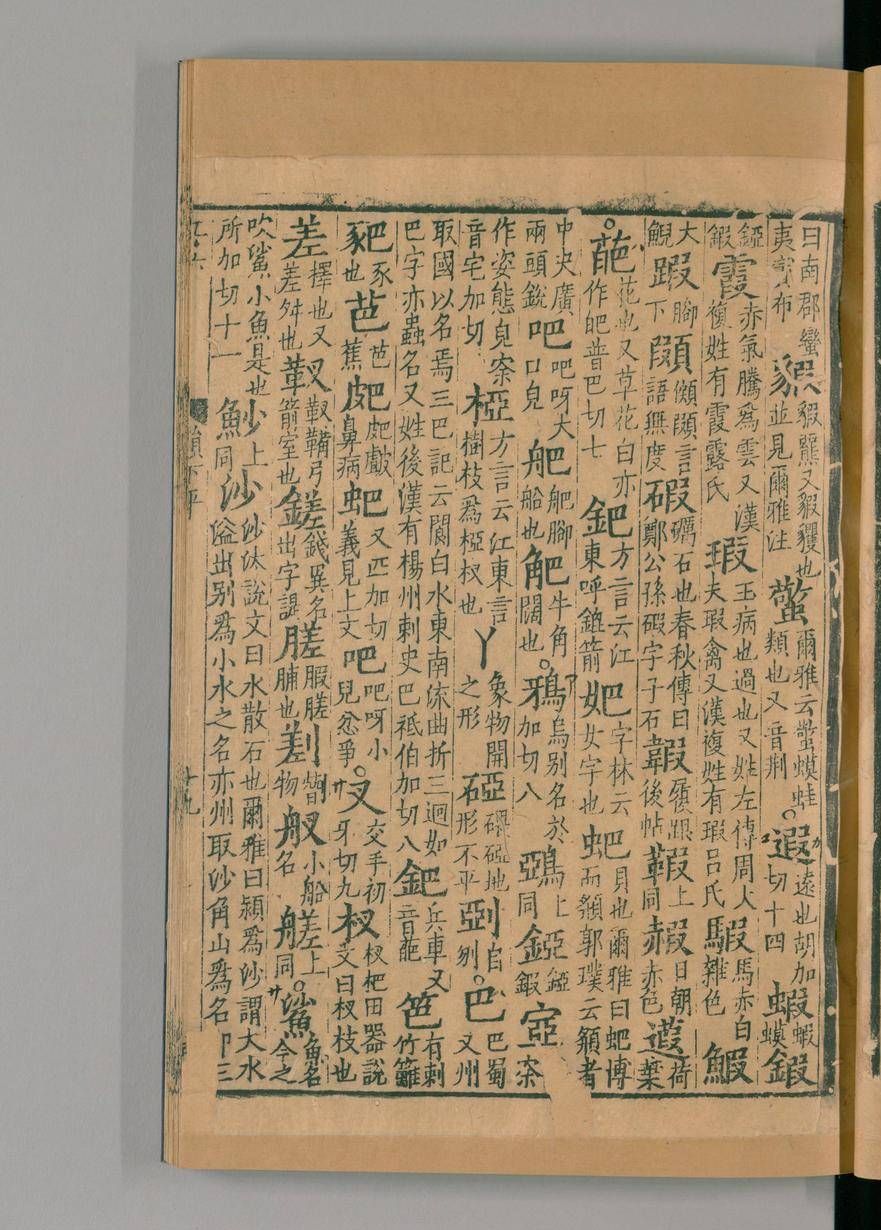 日南郡蠻夷布貑貑羆又貑貜也並見爾雅注蟼爾雅云蟼蟆蛙類也又音荆遐遠也胡加切十四蝦蝦蟆鍜
錏鍜霞赤氣騰爲雲又漢複姓有霞露氏瑕玉病也過也又姓左傳周大夫瑕禽又漢複姓有瑕吕氏騢馬赤白雜色鰕
大鯢腳下言語無度碬礪石也春秋傳曰鄭公孫碬字子石䪗履跟後帖上同赮日朝赤色蕸荷葉
葩花也又草花白亦作皅普巴切七鈀方言云江東呼鎞箭妑字林云女字也蚆貝也爾雅曰蚆博而頯郭璞云頯者
中央廣兩頭鋭吧吧呀大口皃舥舥腳船也牛角闊也鴉烏别名於加切八鵶上同錏錏鍜㝞
作姿態皃音宅加切椏方言云江東言樹枝爲椏杈也丫象物開之形地形不平自刎巴巴蜀又州
取國以名焉三巴記云閬白水東南流曲折三迴如巴字亦蟲名又姓後漢有楊州刺史巴祗伯加切八鈀兵車又音葩笆有刺竹籬
豝豕也芭芭蕉鼻病蚆又匹加切義見上文吧吧呀小兒忿爭叉交手初牙切九杈杈杷田器說文曰杈枝也
差擇也又差舛也靫靫鞴弓箭室也鎈錢異名出字諟䐤腵䐤脯也物舣小船名艖上同鯊魚名今之
吹鯊小魚是也所加切十一魦上同沙沙汰說文曰水散石也爾雅曰潁爲沙謂大水溢出别爲小水之名亦州取沙角山爲名
十九